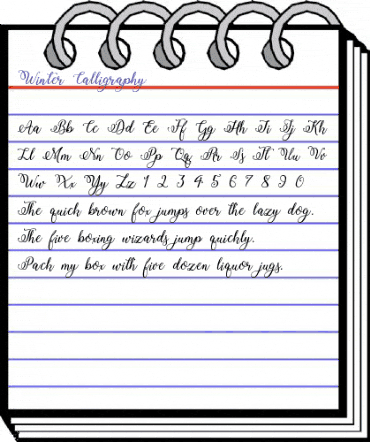 Winter Calligraphy
Aa Bb Cc Dd Ee Ff Gg Hh Ii Jj Kk
Ll Mm Nn Oo Pp Qq Rr Ss Tt Uu Vv
Ww Xx Yy Zz 1 2 3 4 5 6 7 8 9 0
The quick brown fox jumps over the lazy dog.
The five boxing wizards jump quickly.
Pack my box with five dozen liquor jugs.